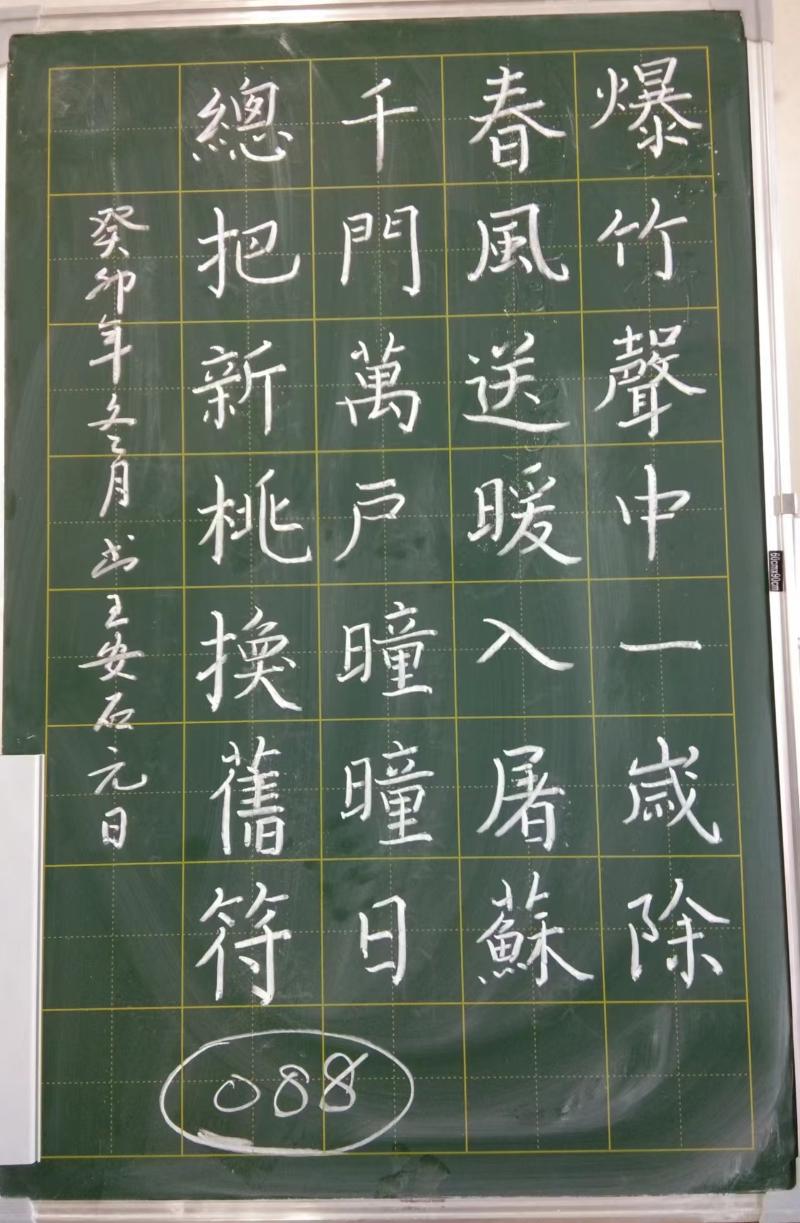 爆竹聲中一歲除
春風送暖入屠蘇
千門萬戶曈曈日
總把新桃換舊符
癸卯年冬月书王安石元日
088
60cmx90cm